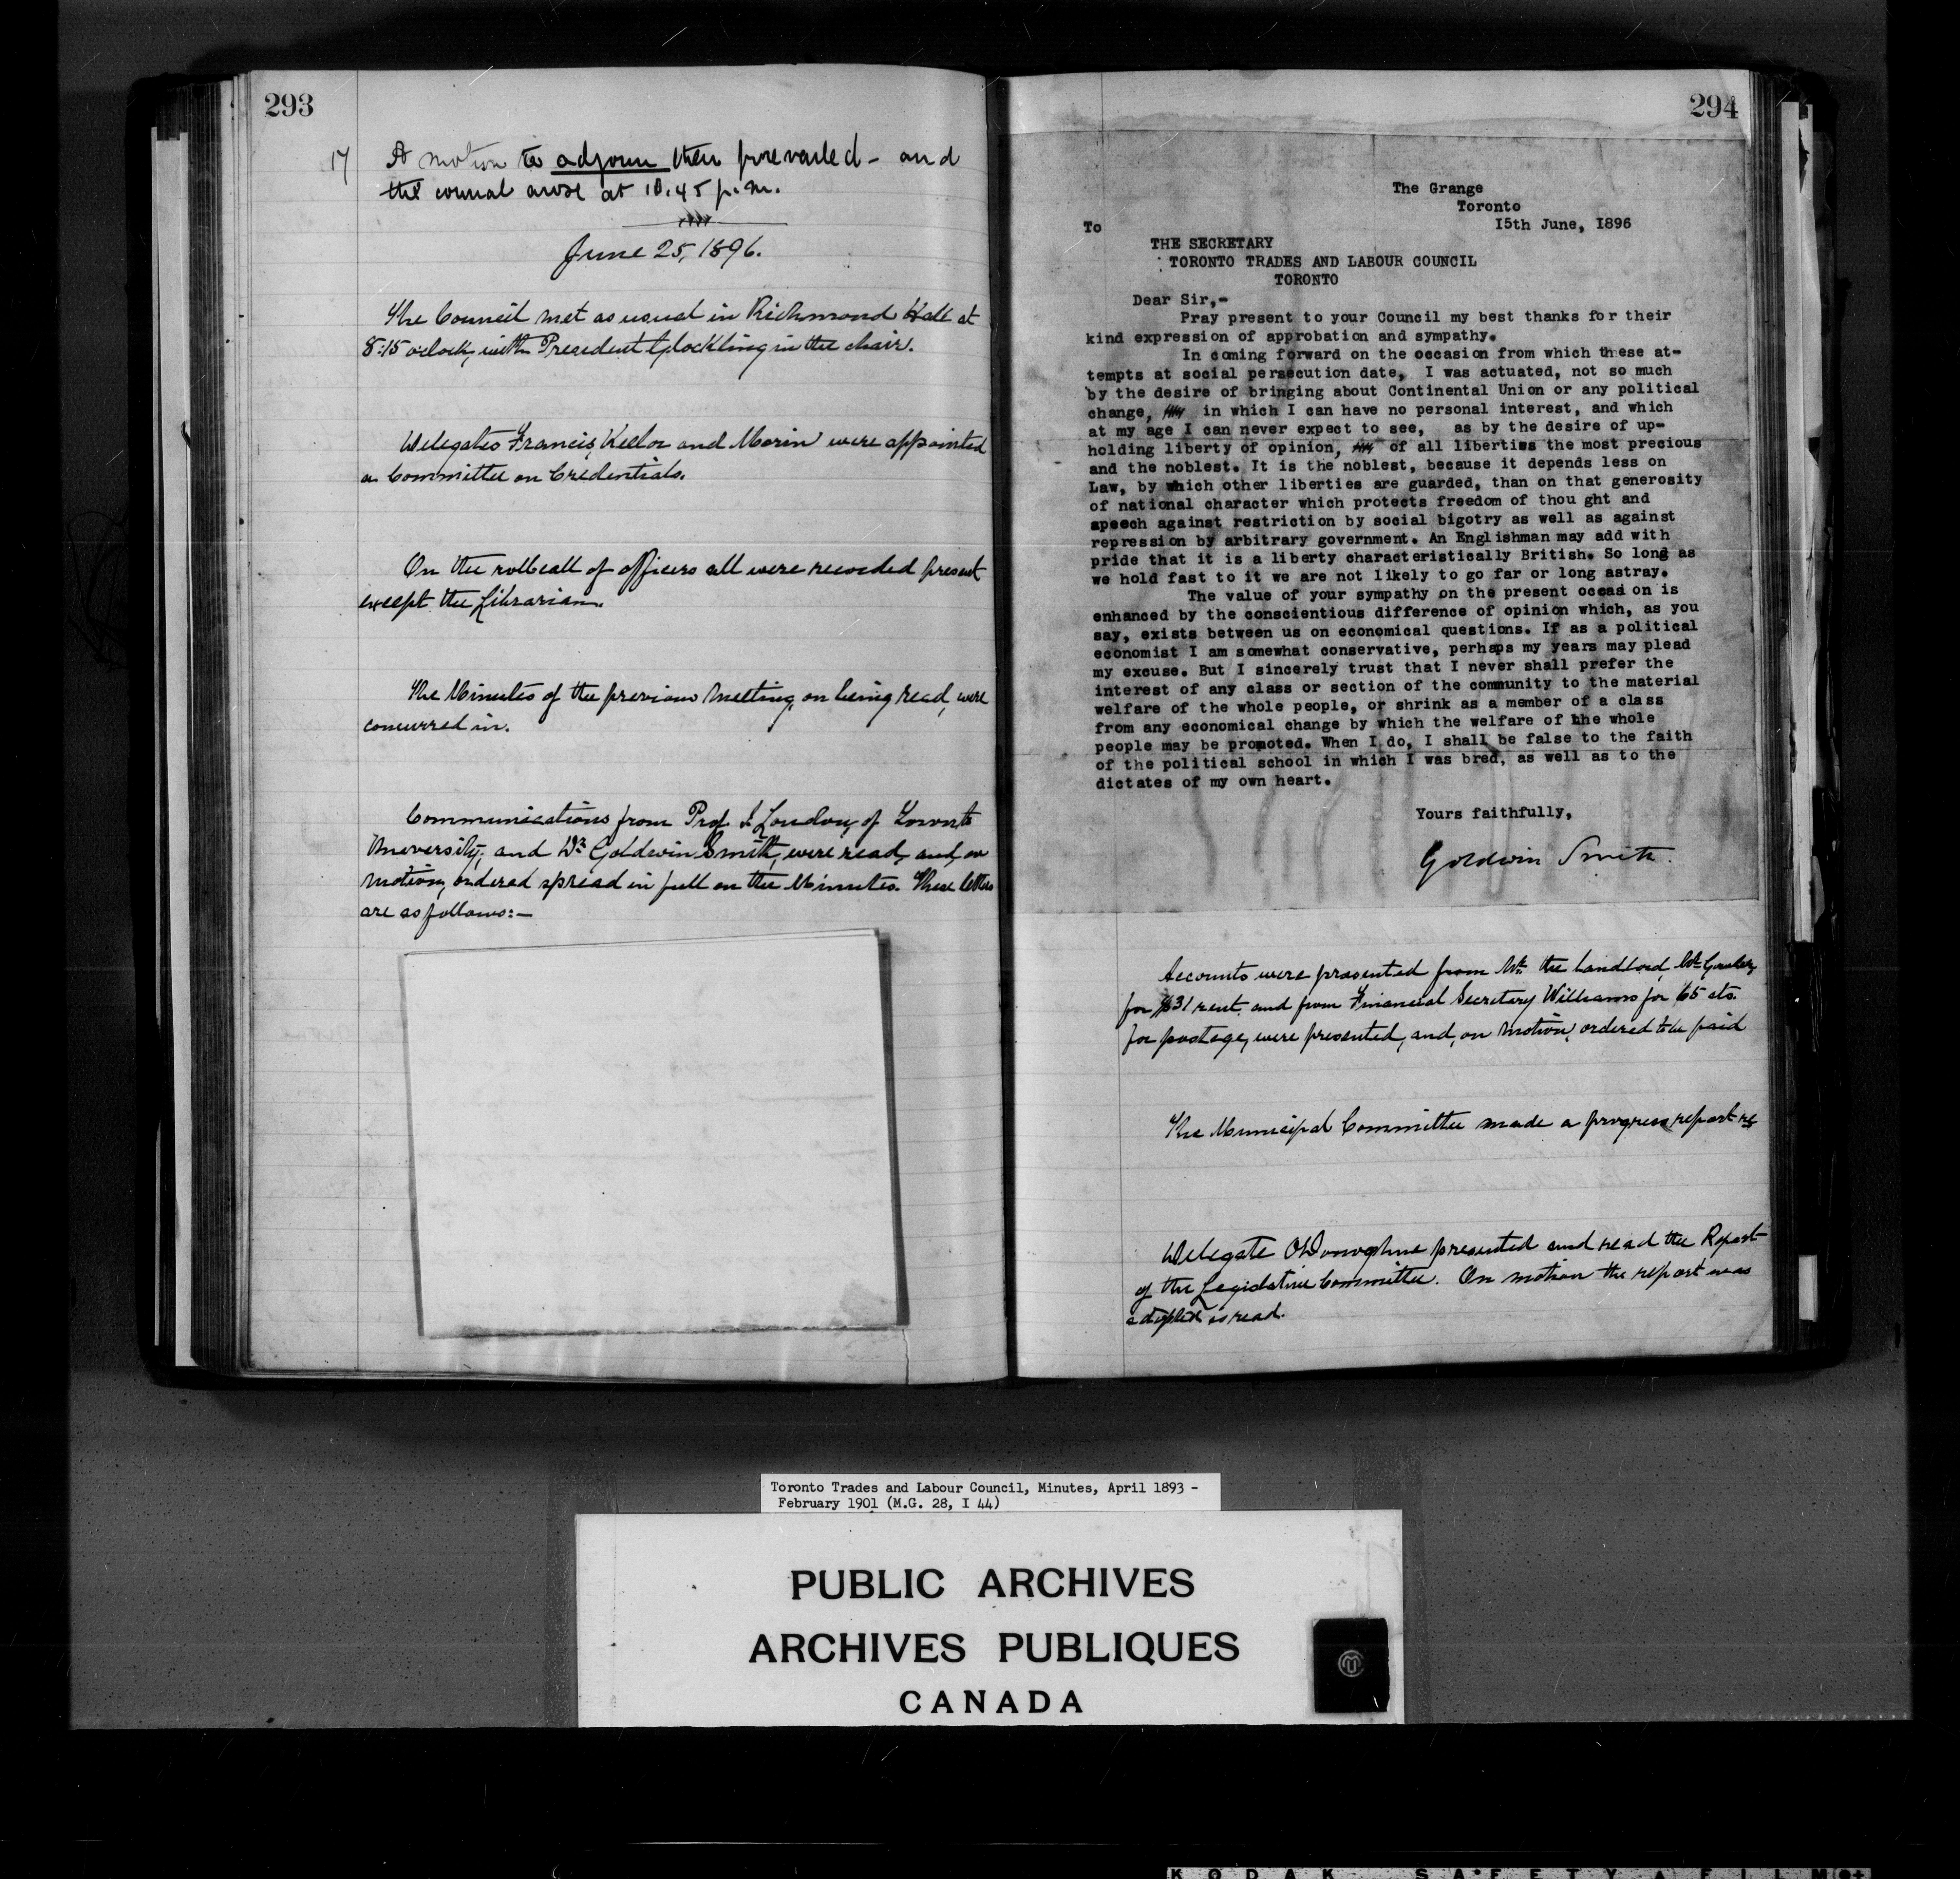 293
17 A motion to adjourn then prevailed - and
the council arose at 10.45 p.m.
June 25, 1896.
The Council met as usual in Richmond Hall at
8:15 o'clock, with President Glockling in the chair.
Delegates Francis, Keelor and Morin were appointed
a Committee on Credentials.
On the rollcall of officers all were recorded present
except the Librarian.
The Minutes of the previous Meeting, on being read, were
concurred in.
Communications from Prof. J. Loudon, of Toronto
University, and Dr. Goldwin Smith, were read, and, on
motion, ordered spread in full on the Minutes. These letters
are as follows:—
294
The Grange
Toronto
15th June, 1896
To
THE SECRETARY
TORONTO TRADES AND LABOUR COUNCIL
TORONTO
Dear Sir,-
Pray present to your Council my best thanks for their
kind expression of approbation and sympathy.
In coming forward on the occasion from which these at-
tempts at social persecution date, I was actuated, not so much
by the desire of bringing about Continental Union or any political
change, in which I can have no personal interest, and which
at my age I can never expect to see, as by the desire of up-
holding liberty of opinion, of all liberties the most precious
and the noblest. It is the noblest, because it depends less on
Law, by which other liberties are guarded, than on that generosity
of national character which protects freedom of thou ght and
speech against restriction by social bigotry as well as against
repression by arbitrary government. An Englishman may add with
pride that it is a liberty characteristically British. So long as
we hold fast to it we are not likely to go far or long astray.
The value of your sympathy on the present occasi on is
enhanced by the conscientious difference of opinion which, as you
say, exists between us on economical questions. If as a political
economist I am somewhat conservative, perhaps my years may plead
my excuse. But I sincerely trust that I never shall prefer the
interest of any class or section of the community to the material
welfare of the whole people, or shrink as a member of a class
from any economical change by which the welfare of the whole
people may be promoted. When I do, I shall be false to the faith
of the political school in which I was bred, as well as to the
dictates of my own heart.
Yours faithfully,
Goldwin Smith.
Accounts were presented from the Landlord, Mr.
for $31 rent and from Financial Secretary Williams for 65 cts.
for postage, were presented, and, on motion, ordered to be paid
The Municipal Committee made a progress report
Delegate O'Donoghue presented and read the Report
of the Legislative Committee. On motion the report was
adopted as read.
Toronto Trades and Labour Council, Minutes, April 1893 -
February 1901 (M.G. 28, I 44)
PUBLIC ARCHIVES
ARCHIVES PUBLIQUES
CANADA
KODAK SAFETY FILM